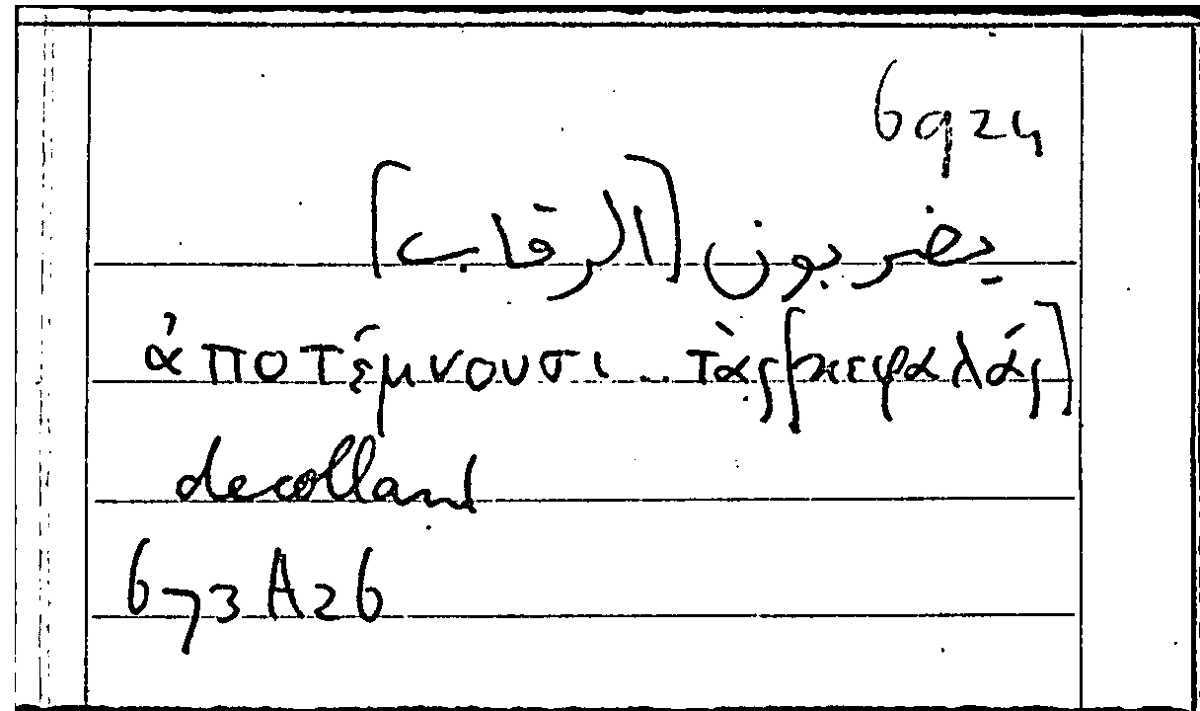 6924
يضربون [الرقاب]
ἀποτέμνουσι... τὰς [κεφαλάς]
decollant
673A26